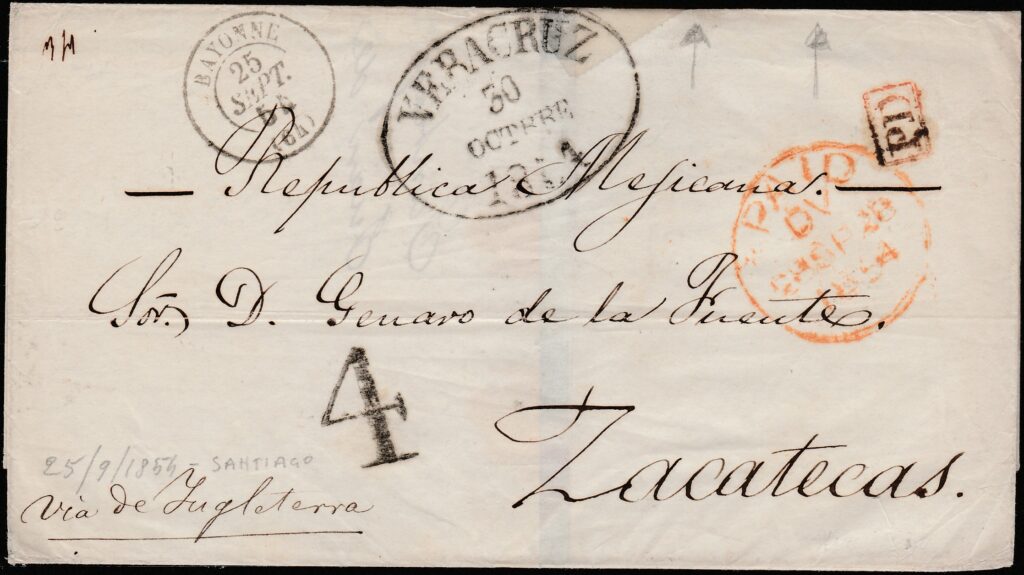 BAYONNE
25
SEPT.
54
(64)
VERACRUZ
30
OCTBRE
1854
PD
PAID
28 SP 28
1854
Republica Mejicana.
Sor. D. Genaro de la Fuente.
4
Zacatecas.
25/9/1854 - SANTIAGO
via de Inglaterra